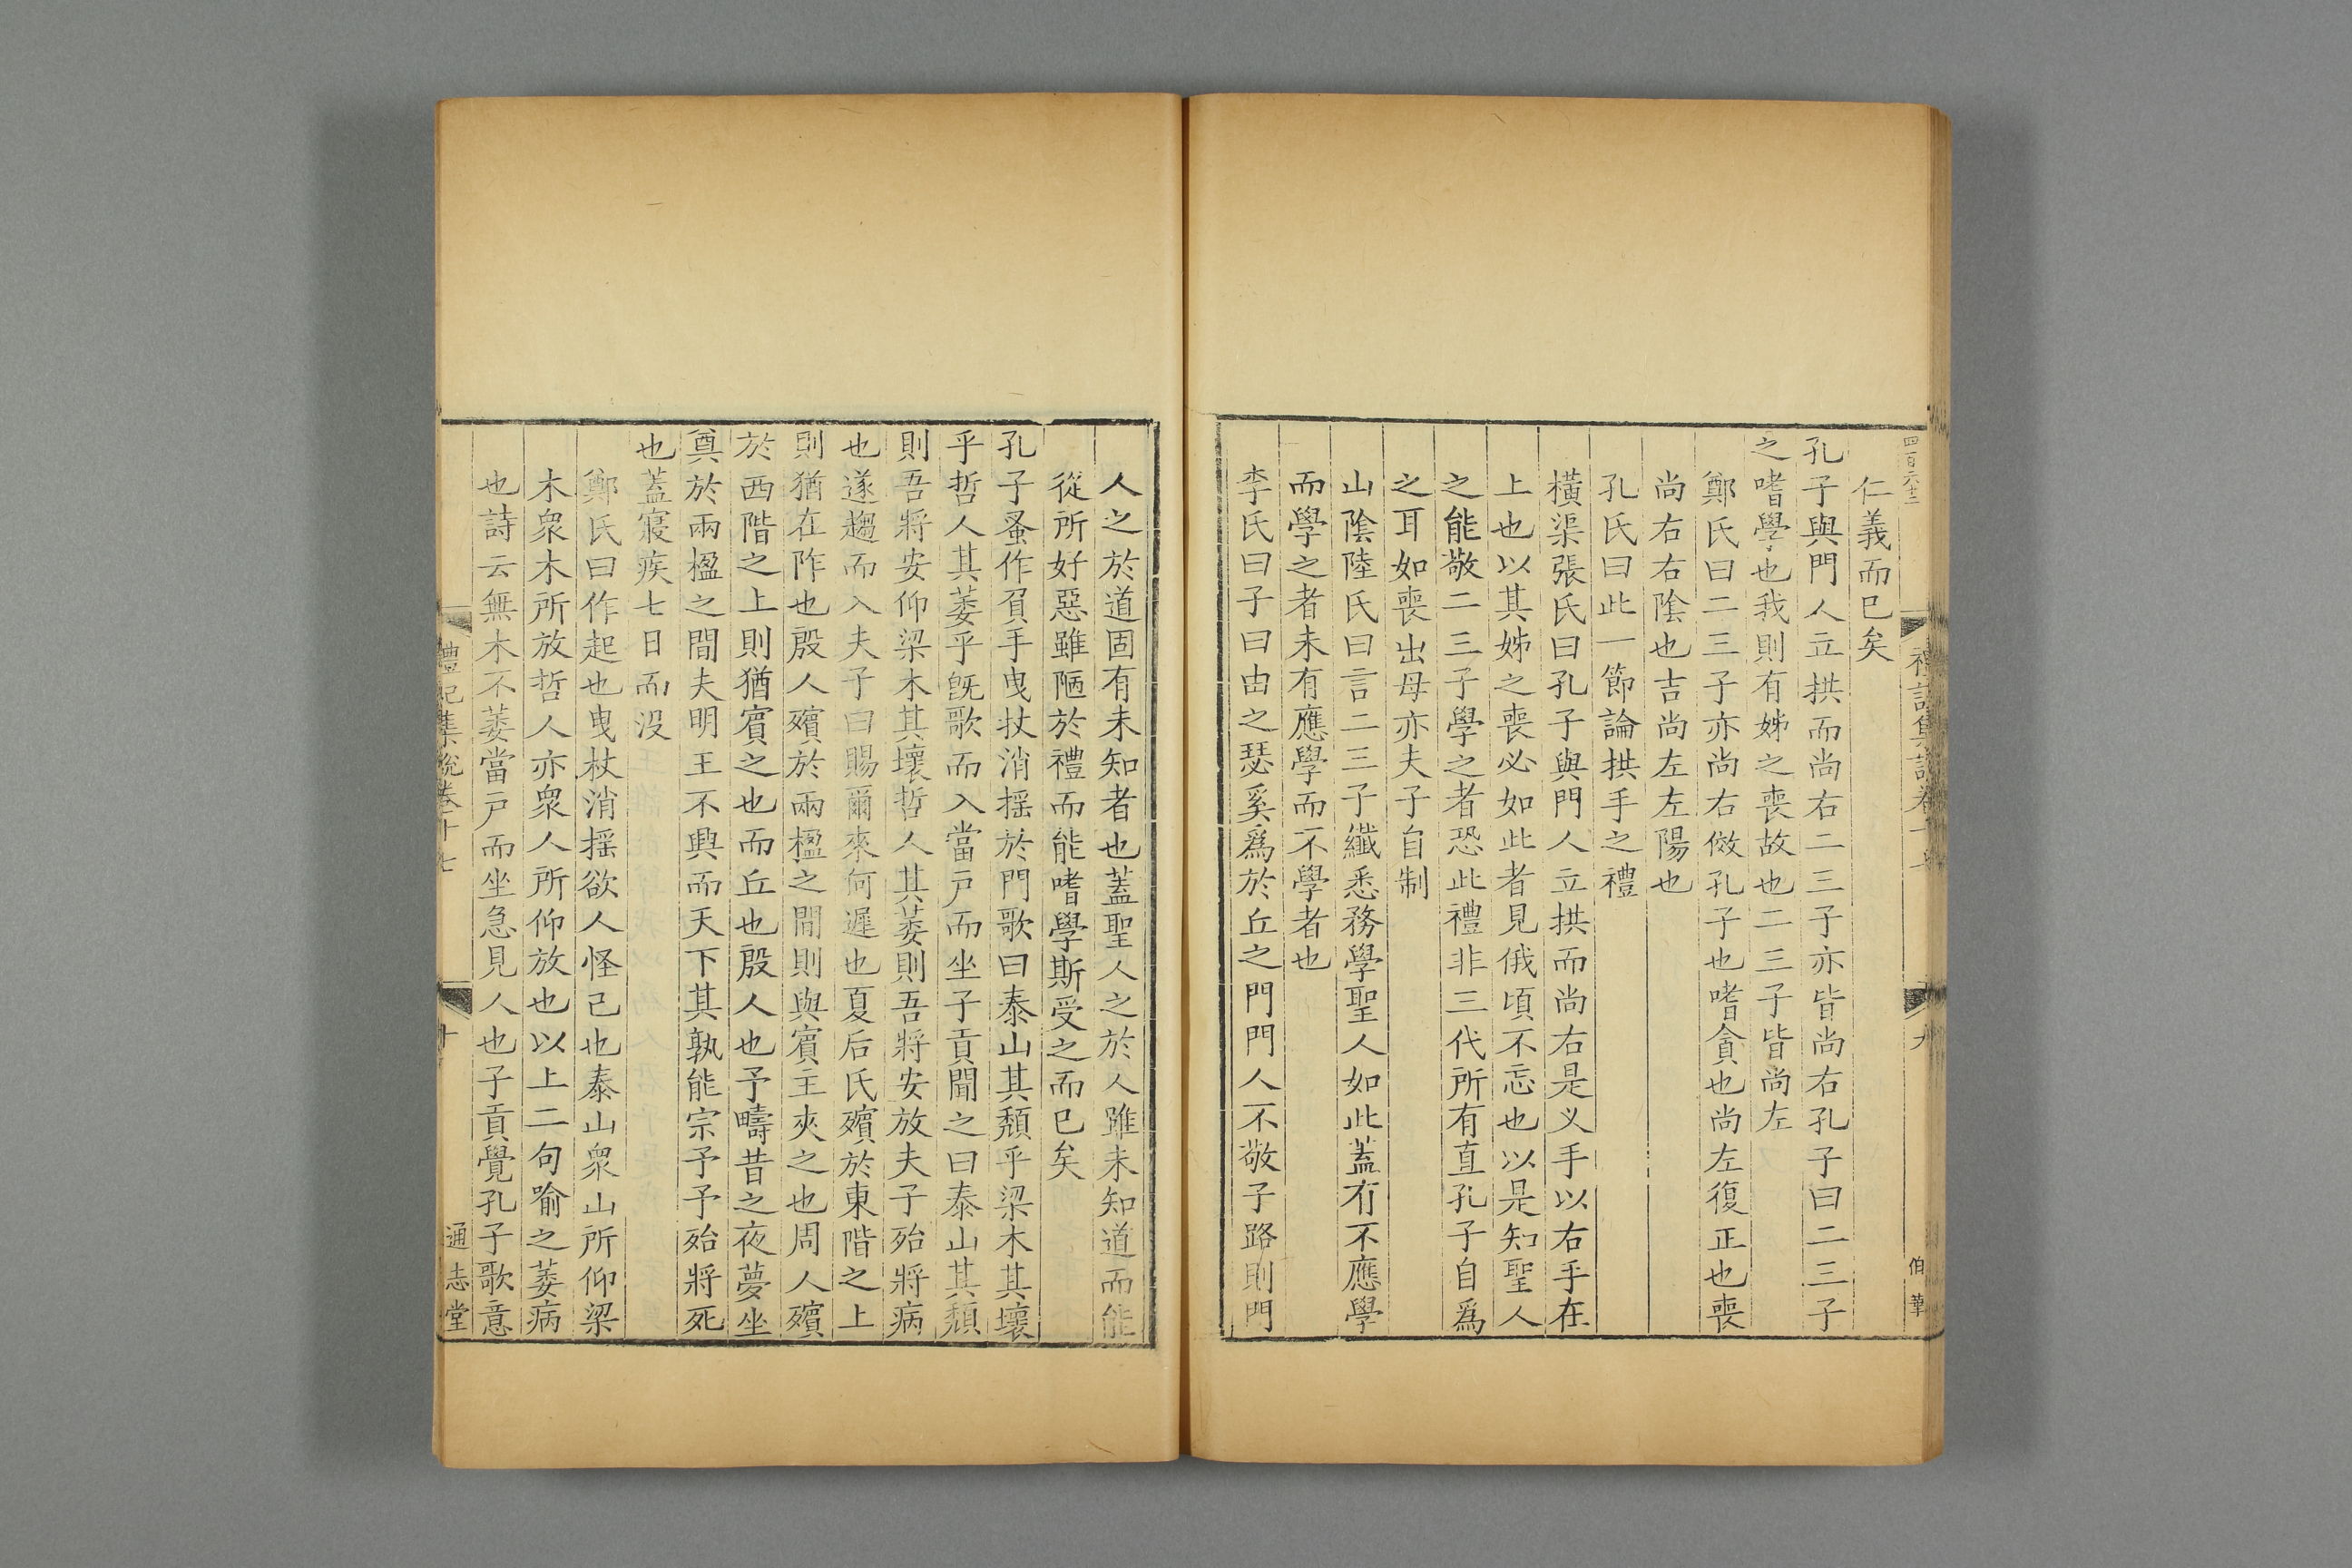 四百六十二
禮記集說卷十七
九
伯華
仁義而已矣
孔子與門人立拱而尚右二三子亦皆尚右孔子曰二三子
之嗜學也我則有姊之喪故也二三子皆尚左
鄭氏曰二三子亦尚右傚孔子也嗜貪也尚左復正也喪
尚右右陰也吉尚左左陽也
孔氏曰此一節論拱手之禮
橫渠張氏曰孔子與門人立拱而尚右是义手以右手在
上也以其姊之喪必如此者見俄頃不忘也以是知聖人
之能敬二三子學之者恐此禮非三代所有直孔子自爲
之耳如喪出母亦夫子自制
山陰陸氏曰言二三子纎悉務學聖人如此蓋有不應學
而學之者未有應學而不學者也
李氏曰子曰由之瑟奚爲於丘之門門人不敬子路則門
人之於道固有未知者也蓋聖人之於人雖未知道而能
從所好惡雖陋於禮而能嗜學斯受之而已矣
孔子蚤作負手曳杖消揺於門歌曰泰山其頹乎梁木其壞
乎哲人其萎乎旣歌而入當戸而坐子貢聞之曰泰山其頹
則吾將安仰梁木其壞哲人其萎則吾將安放夫子殆將病
也遂趨而入夫子曰賜爾來何遲也夏后氏殯於東階之上
則猶在阼也殷人殯於兩楹之間則與賓主夾之也周人殯
於西階之上則猶賓之也而丘也殷人也予疇昔之夜夢坐
奠於兩楹之間夫明王不興而天下其孰能宗予予殆將死
也蓋寢疾七日而没
鄭氏曰作起也曳杖消揺欲人怪己也泰山衆山所仰梁
木衆木所放哲人亦衆人所仰放也以上二句喻之萎病
也詩云無木不萎當戸而坐急見人也子貢覺孔子歌意
禮記集說卷十七
十
通志堂